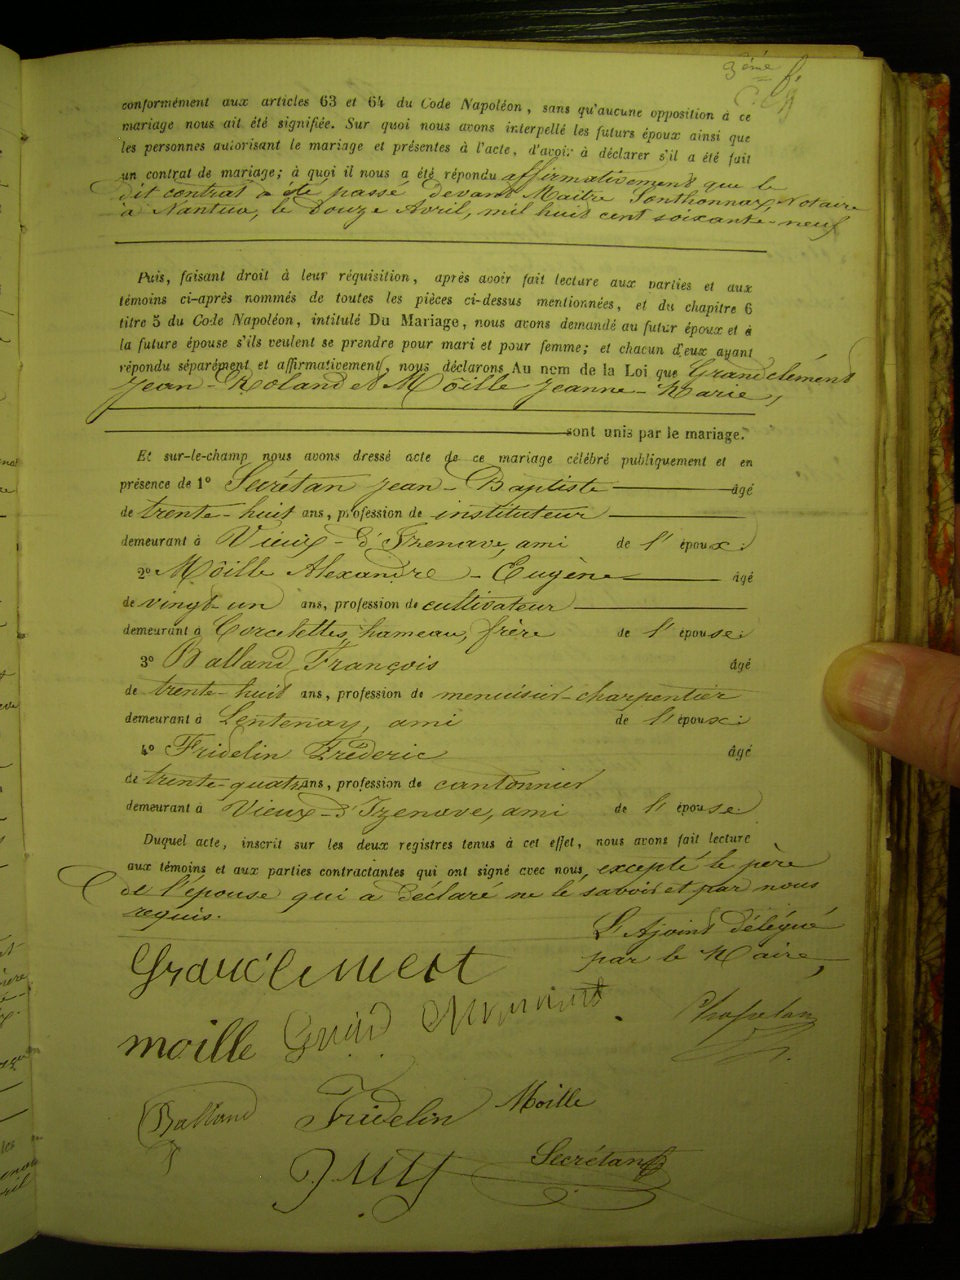 3ème f.
conformément aux articles 63 et 64 du Code Napoléon, sans qu'aucune opposition à ce
mariage nous ait été signifiée. Sur quoi nous avons interpellé les futurs époux ainsi que
les personnes autorisant le mariage et présentes à l'acte, d'avoir à déclarer s'il a été fait
un contrat de mariage; à quoi il nous a été répondu affirmativement que le
dit contrat a été passé devant Maître Jonthonnax, Notaire
à Nantua, le Douze Avril, mil huit cent soixante-neuf
Puis, faisant droit à leur réquisition, après avoir fait lecture aux parties et aux
témoins ci-après nommés de toutes les pièces ci-dessus mentionnées, et du chapitre 6
titre 5 du Code Napoléon, intitulé Du Mariage, nous avons demandé au futur époux et à
la future épouse s'ils veulent se prendre pour mari et pour femme; et chacun d'eux ayant
répondu séparément et affirmativement, nous déclarons Au nom de la Loi que Grandclément
Jean-Roland et Moille Jeanne-Marie,
sont unis par le mariage.
Et sur-le-champ nous avons dressé acte de ce mariage célébré publiquement et en
présence de 1º Secrétan Jean-Baptiste âgé
de trente-huit ans, profession de instituteur
demeurant à Vieux-d'Izenave, ami de l'époux;
2º Môille Alexandre-Eugène âgé
de vingt-un ans, profession de cultivateur
demeurant à Corcelettes, hameau, frère de l'épouse;
3º Balland François âgé
de trente-huit ans, profession de menuisier-charpentier
demeurant à Lentenay, ami de l'époux;
4º Fridelin Fréderic âgé
de trente-quatre ans, profession de cantonnier
demeurant à Vieux-d'Izenave, ami de l'épouse
Duquel acte, inscrit sur les deux registres tenus à cet effet, nous avons fait lecture
aux témoins et aux parties contractantes qui ont signé avec nous, excepté le père
de l'épouse qui a déclaré ne le savoir et par nous
requis.
L'Ajoint délégué
par le Maire,
Grandclement
moille Grand Clement
Balland Fridelin Moille
Secrétan